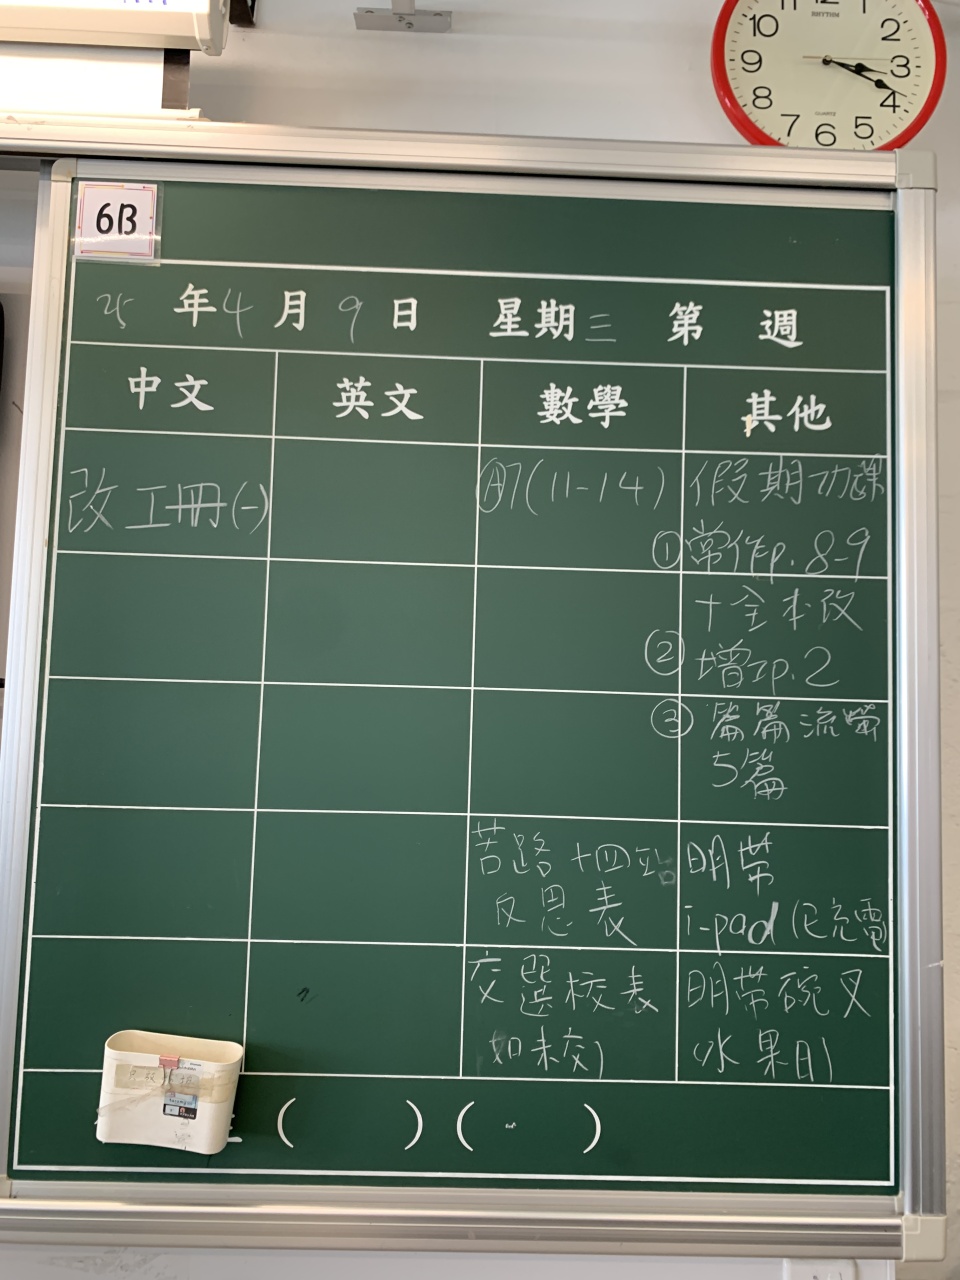 11 12 1
10 2
9 3
8 4
7 6 5
RHYTHM
QUARTZ
6B
25 年 4 月 9 日 星期三 第 週
中文 英文 數學 其他
改工冊(一)
Ⓐ7(11-14)
假期功課
①常作p.8-9
+全本改
②增工p.2
③篇篇流螢
5篇
苦路十四站
反思表
明帶
i-pad(已充電
交選校表
(如未交)
明帶碗叉
(水果日)
( ) ( )